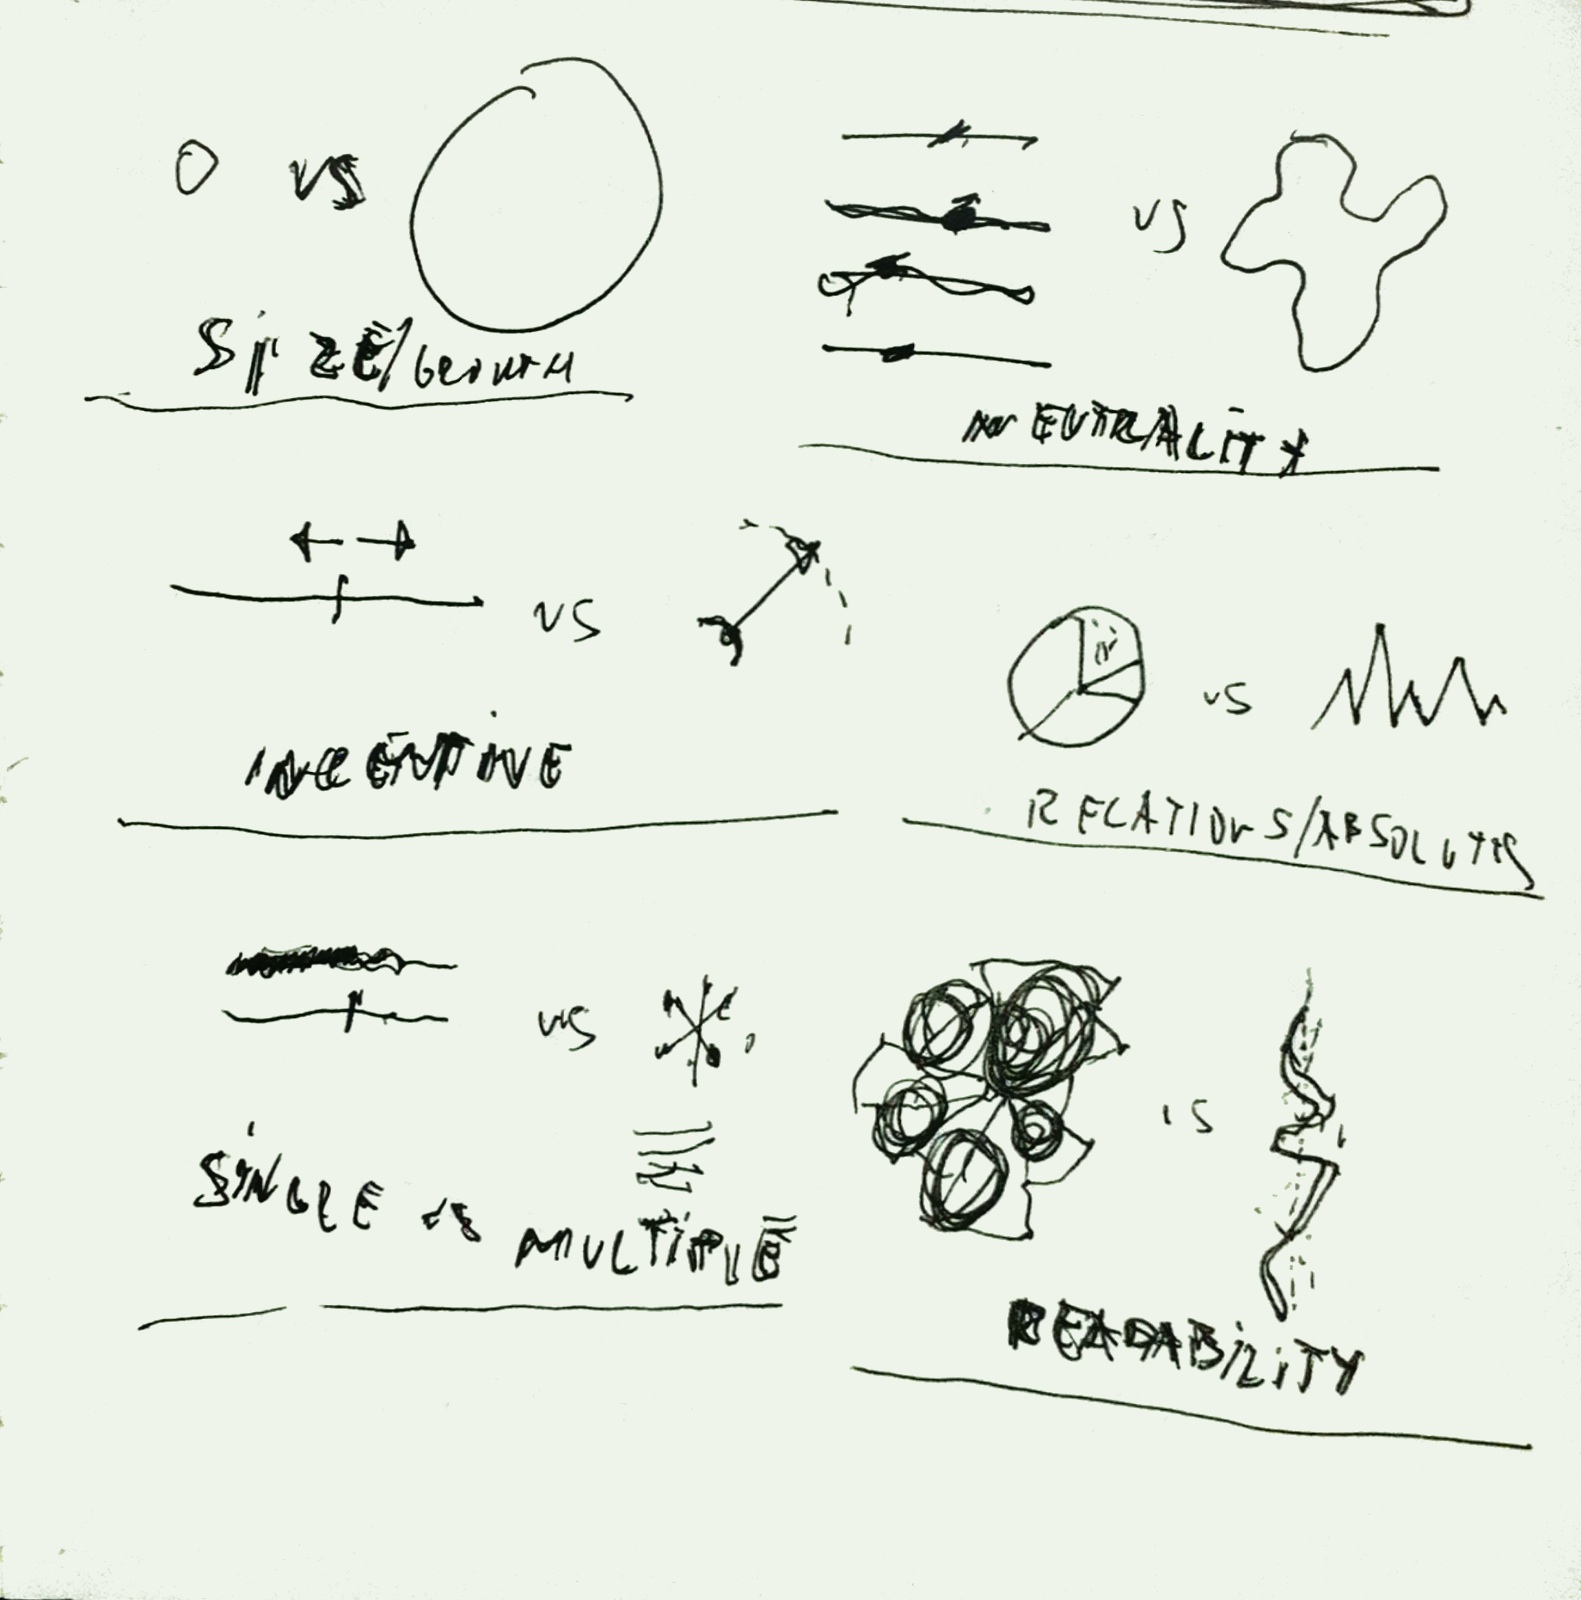 VS
SIZE/GROWTH
VS
NEUTRALITY
VS
INCENTIVE
VS
RELATIONS/ABSOLUTES
VS
SINGLE VS MULTIPLE
VS
READABILITY